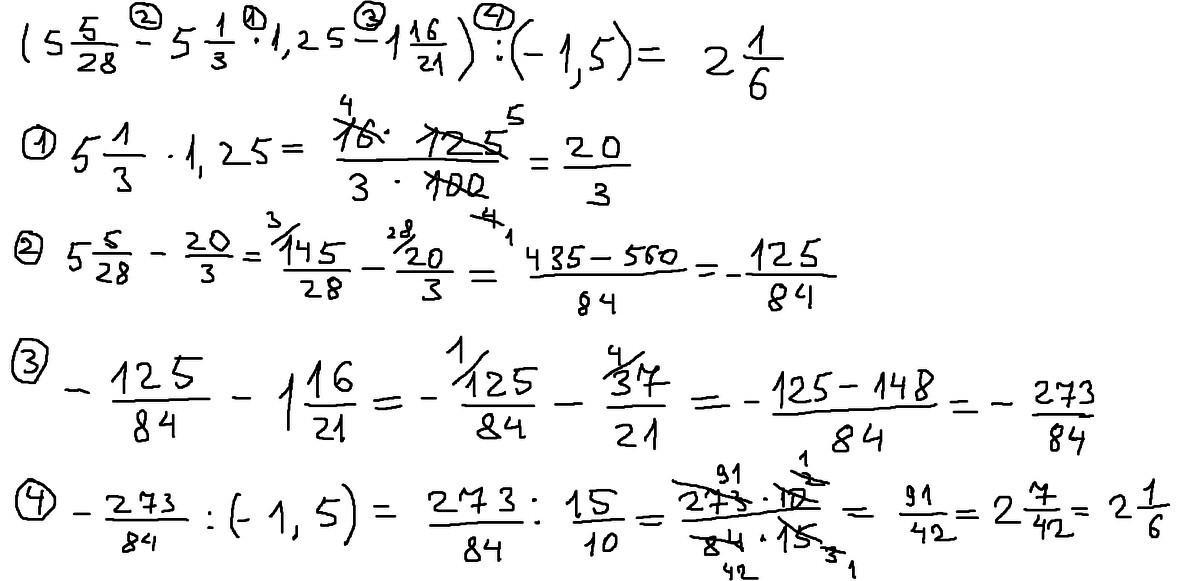 (5 5/28 ②- 5 1/3 ①· 1,25 ③- 1 16/21) ④: (- 1,5) = 2 1/6
① 5 1/3 · 1,25 = 4 16 · 125 5 / 3 · 100 4 1 = 20/3
② 5 5/28 - 20/3 = 3/ 145/28 - 28/ 20/3 = 435 - 560 / 84 = - 125/84
③ - 125/84 - 1 16/21 = - 1/ 125/84 - 4/ 37/21 = - 125 - 148 / 84 = - 273/84
④ - 273/84 : (- 1,5) = 273/84 : 15/10 = 91 273 · 10 2 1 / 84 42 · 15 3 1 = 91/42 = 2 7/42 = 2 1/6